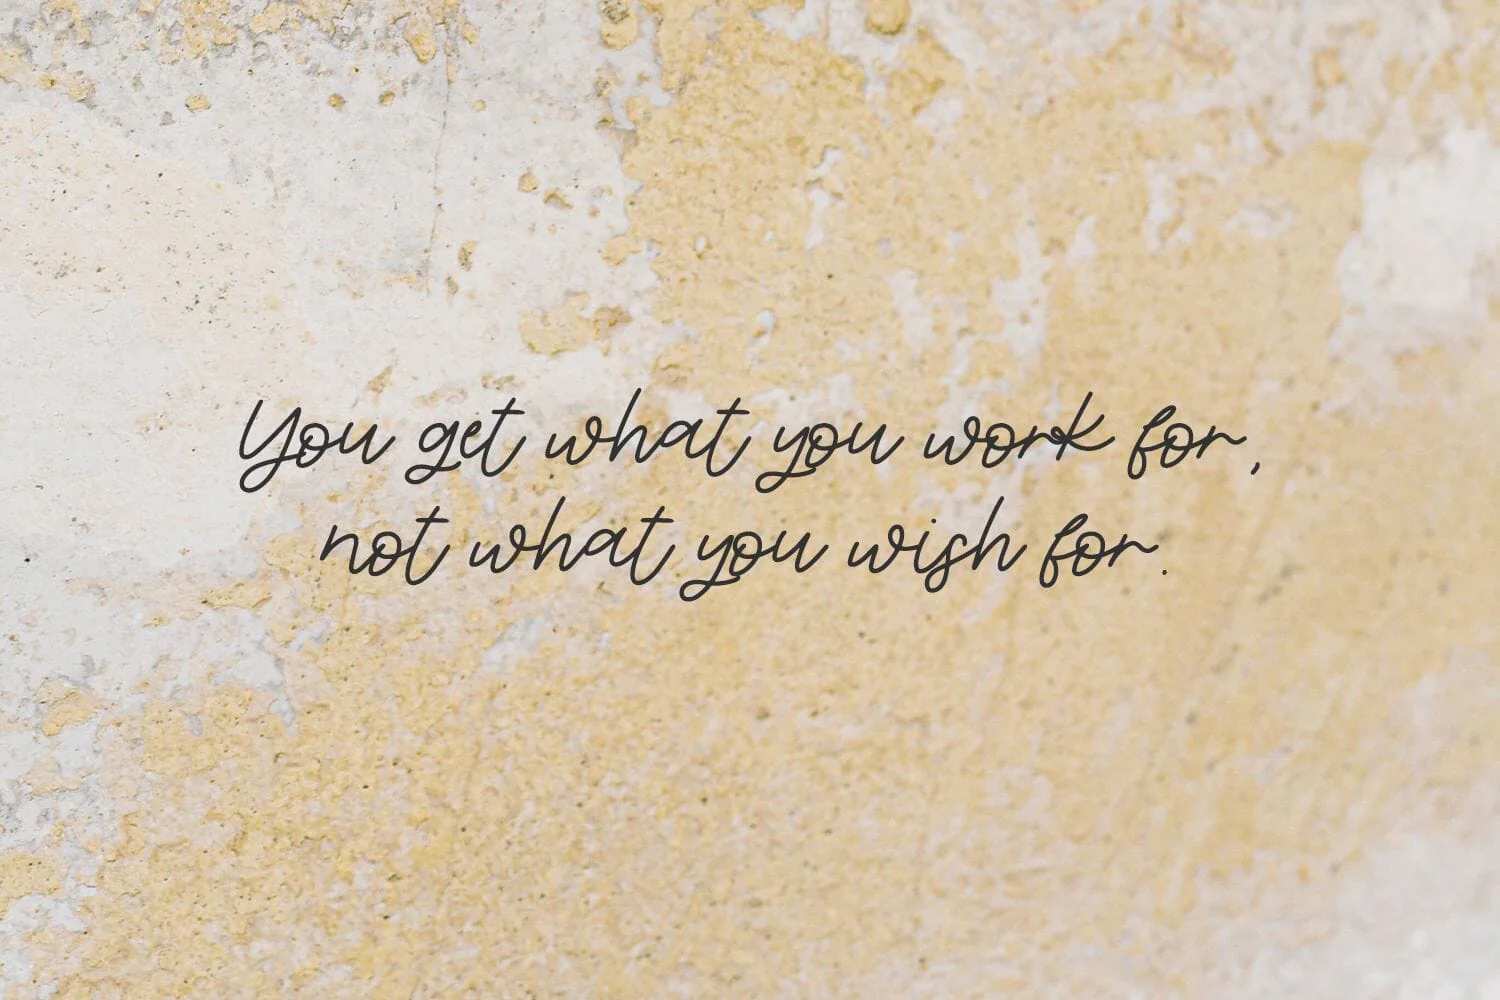 You get what you work for,
not what you wish for.